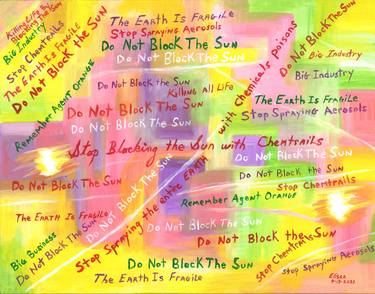 Killing Life By
Blocking the Sun
Big Industry
Stop Chemtrails
The Earth Is Fragile
Do Not Block the Sun
Remember Agent Orange
The Earth Is Fragile
Stop Spraying Aerosols
Do Not Block The Sun
Do Not Block The Sun
Do Not Block The Sun
Big Industry
Big Industry
with Chemicals poisons
Do Not Block the Sun
Killing All Life
The Earth Is Fragile
Stop Spraying Aerosols
Do Not Block The Sun
Do Not Block The Sun
Stop Blocking the Sun with Chemtrails
Do Not Block The Sun
Do Not Block The Sun
Do Not Block The Sun
Do Not Block the Sun
Stop Chemtrails
Remember Agent Orange
Stop Spraying the entire EARTH
The Earth Is Fragile
Do Not Block The Sun
Big Business
Do Not Block The Sun
Do Not Block the Sun
Do Not Block The Sun
The Earth Is Fragile
Stop Chemtrails
Stop Spraying Aerosols